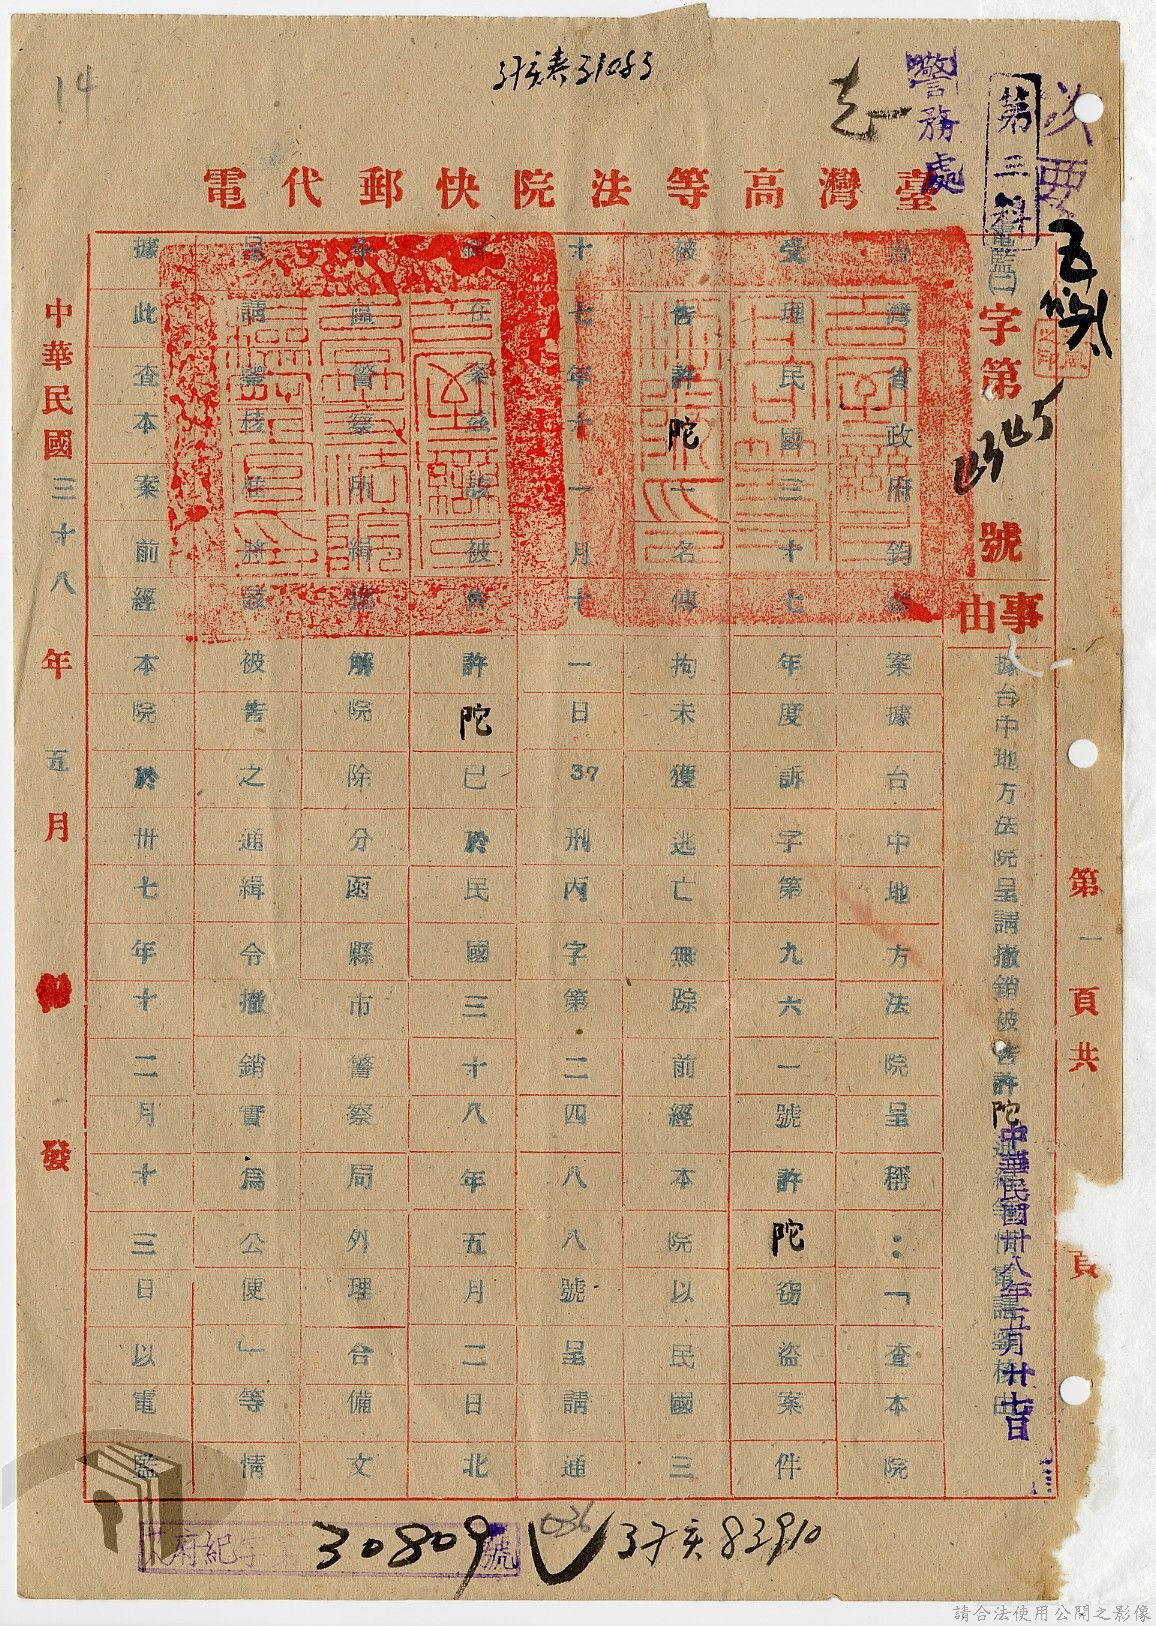 14
警務處
第三科
次要
臺灣高等法院快郵代電
電監(二)字第 號
事由
據台中地方法院呈請撤銷被告許陀通緝等情電請鑒核由
中華民國卅八年五月廿七日
第一頁共 頁
台灣省政府鈞鑒案據台中地方法院呈稱:「查本院
受理民國三十七年度訴字第九六一號許陀竊盜案件
被告許陀一名傳拘未獲逃亡無踪前經本院以民國三
十七年十一月十一日37刑丙字第二四八八號呈請通
緝在案茲該被告許陀已於民國三十八年五月二日北
斗區警察所緝獲解院除分函縣市警察局外理合備文
呈請鑒核准將該被告之通緝令撤銷實為公便」等情
據此查本案前經本院於卅七年十二月十三日以電監
中華民國三十八年五月 發
府紀字第30809號
036
83910
請合法使用公開之影像